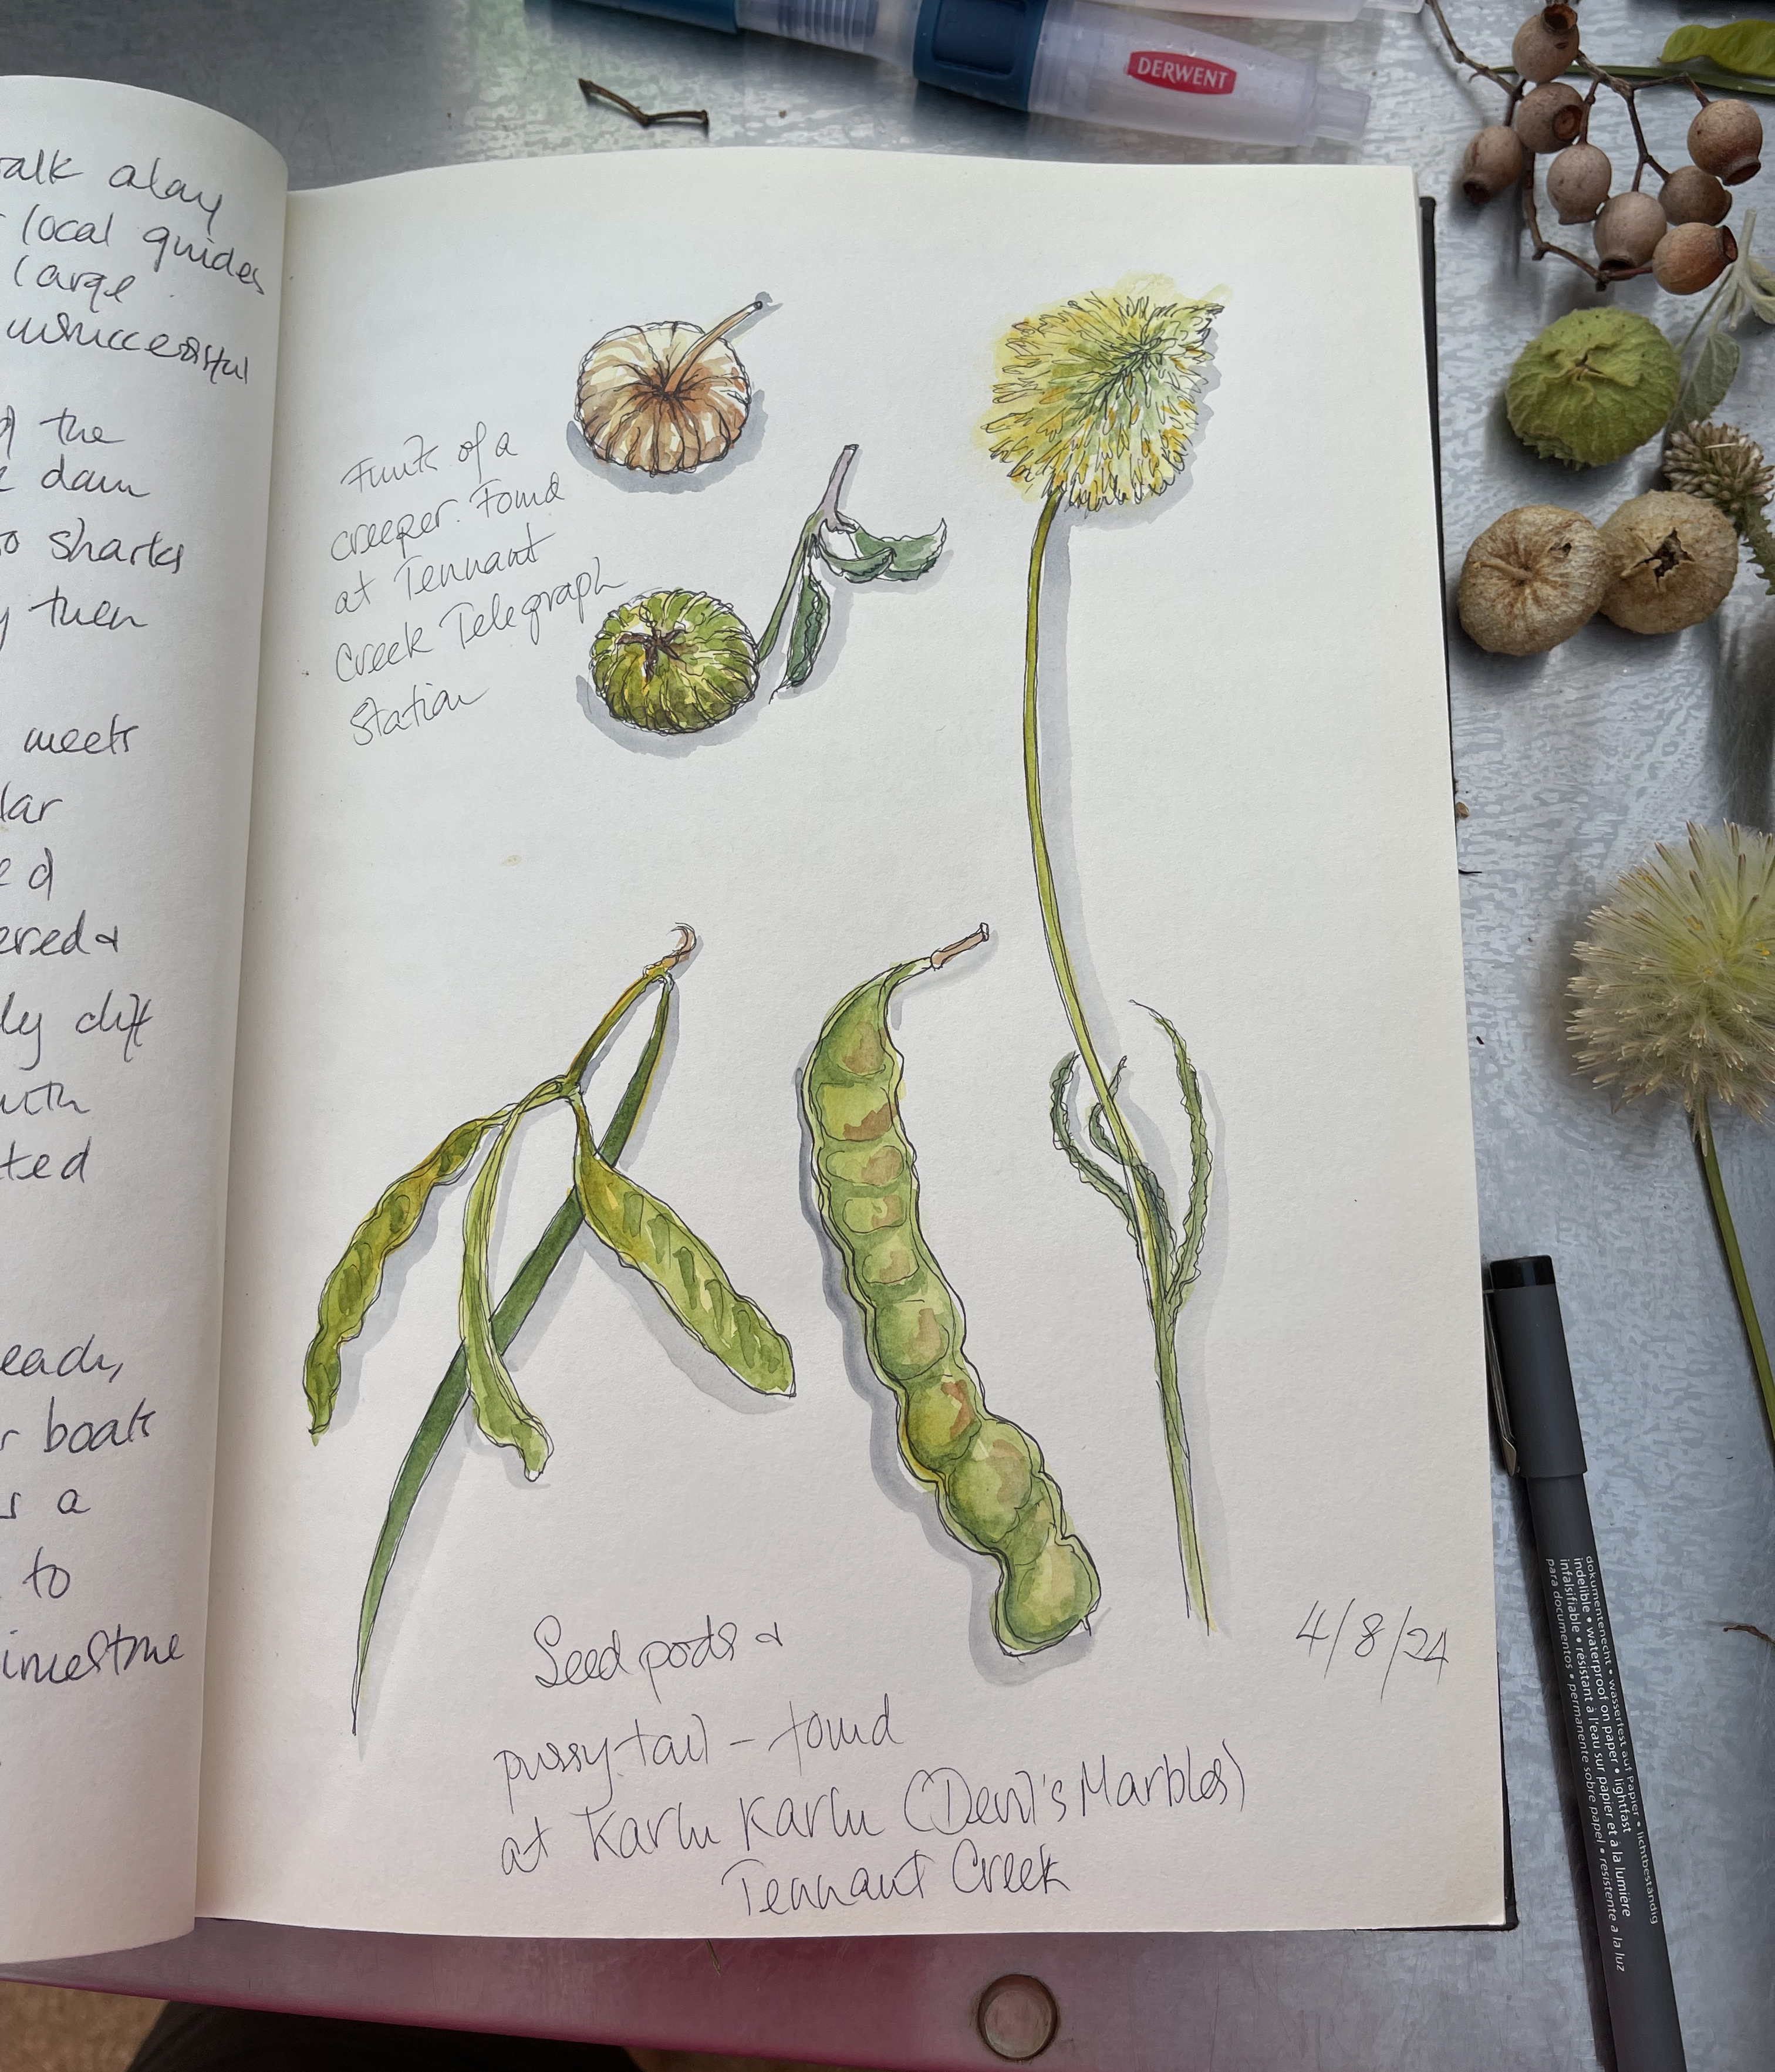 DERWENT
alk along
local guides
large
unsuccessful
the
dam
sharks
then
meets
lar
ed
ered &
ly diff
with
ted
eads,
boats
s a
to
imestone
Fruits of a
creeper. Found
at Tennant
Creek Telegraph
Station
Seed pods &
pussytail – found
at Karlu Karlu (Devil's Marbles)
Tennant Creek
4/8/24
dokumentenecht • wasserfest auf Papier • lichtbeständig
indelible • waterproof on paper • lightfast
infalsifiable • résistant à l'eau sur papier et à la lumière
para documentos • permanente sobre papel • resistente a la luz